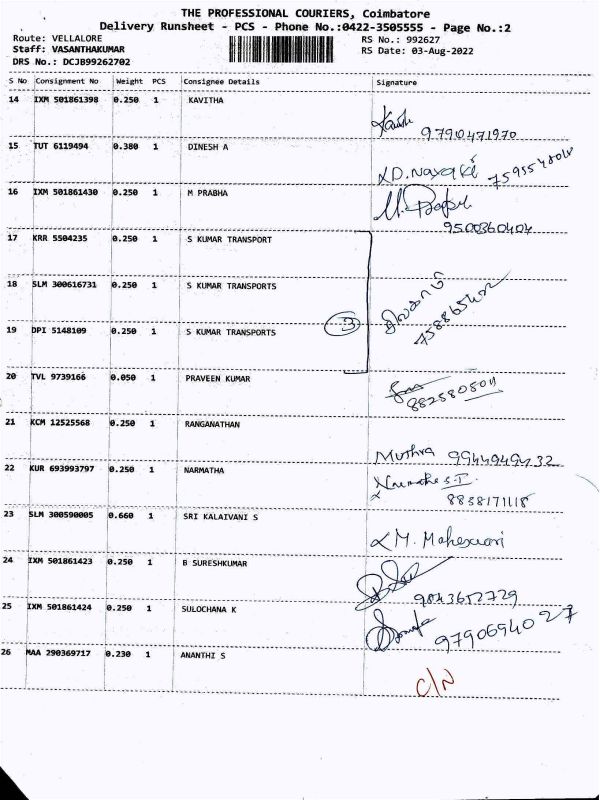 THE PROFESSIONAL COURIERS, Coimbatore
Delivery Runsheet - PCS - Phone No.:0422-3505555 - Page No.:2
Route: VELLALORE RS No.: 992627
Staff: VASANTHAKUMAR RS Date: 03-Aug-2022
DRS No.: DCJB99262702
S No Consignment No Weight PCS Consignee Details Signature
14 IXM 501861398 0.250 1 KAVITHA
9790471970
15 TUT 6119494 0.380 1 DINESH A
D. Nayaki
16 IXM 501861430 0.250 1 M PRABHA
9500360404
17 KRR 5504235 0.250 1 S KUMAR TRANSPORT
18 SLM 300616731 0.250 1 S KUMAR TRANSPORTS
19 DPI 5148109 0.250 1 S KUMAR TRANSPORTS 3
20 TVL 9739166 0.050 1 PRAVEEN KUMAR
8825805011
21 KCM 12525568 0.250 1 RANGANATHAN
Muthra
22 KUR 693993797 0.250 1 NARMATHA
8838171118
23 SLM 300590005 0.660 1 SRI KALAIVANI S
M. Maheswari
24 IXM 501861423 0.250 1 B SURESHKUMAR
9043652729
25 IXM 501861424 0.250 1 SULOCHANA K
9790694027
26 MAA 290369717 0.230 1 ANANTHI S
C/N